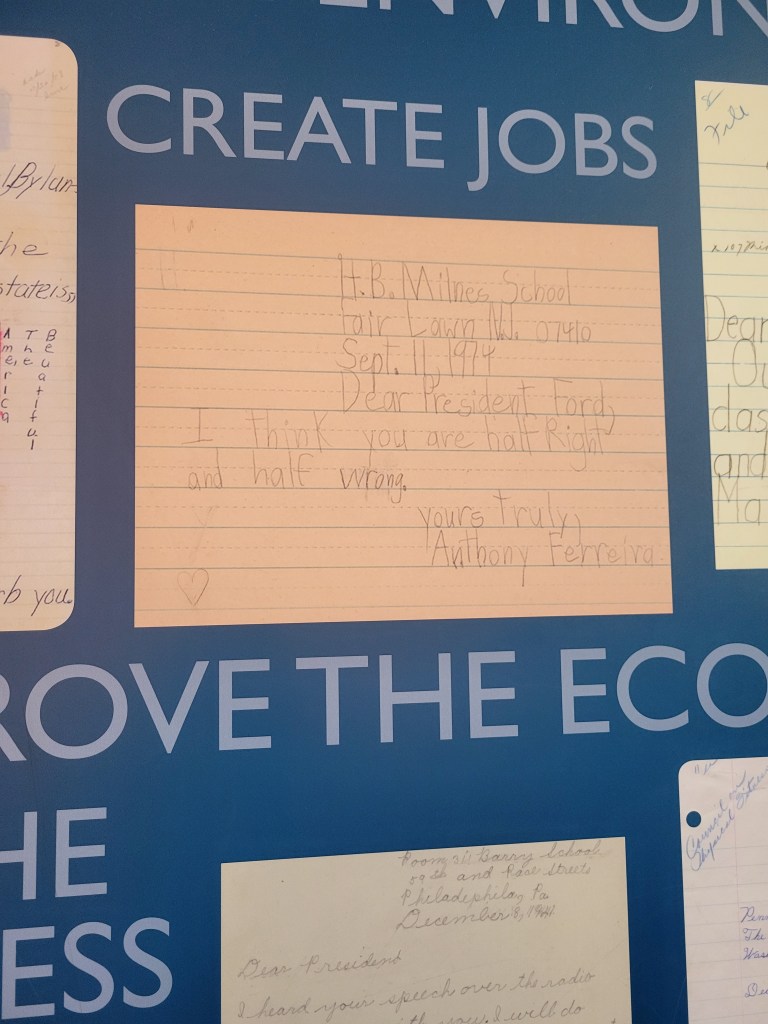 ENVIRON
CREATE JOBS
Bylan
he
stateiss,
A T B
m h e
e, e u
r a
i t
c i
a f
u
l
rb you.
H.B. Milnes School
Fair Lawn NJ. 07410
Sept. 11, 1974
Dear President Ford,
I think you are half Right
and half wrong.
yours truly,
Anthony Ferreira
Dear
Ou
das
and
Ma
ROVE THE ECO
HE
ESS
Room 31 Barry School
59 th and Race Streets
Philadephila, Pa
December 8, 1941
Dear President
I heard your speech over the radio
with you. I will do
Council on
Physical
Penn
The
Was
De